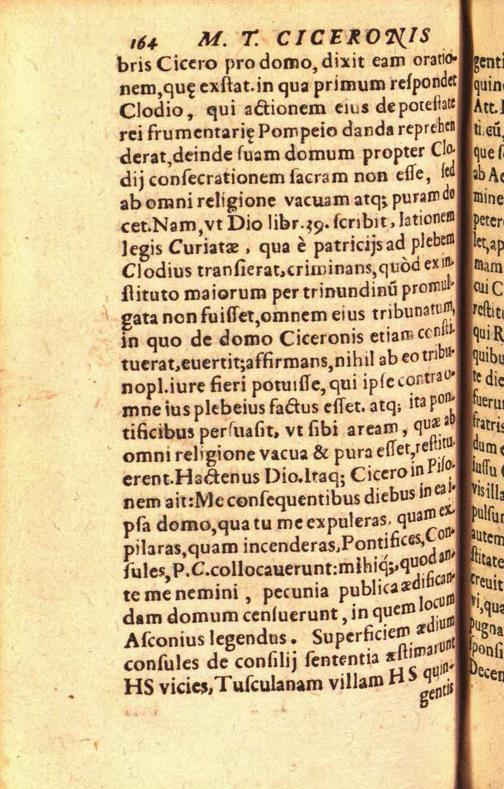 164 M. T. CICERONIS
bris Cicero pro domo, dixit eam oratio-
nem, quę exſtat. in qua primum reſpondet
Clodio, qui actionem eius de poteſtate
rei frumentarię Pompeio danda reprehen
derat, deinde ſuam domum propter Clo-
dij conſecrationem ſacram non eſſe, ſed
ab omni religione vacuam atq; puram do
cet. Nam, vt Dio libr. 39. ſcribit, lationem
legis Curiatæ, qua è patricijs ad plebem
Clodius tranſierat, criminans, quòd ex in-
ſtituto maiorum per trinundinũ promul-
gata non fuiſſet, omnem eius tribunatum,
in quo de domo Ciceronis etiam conſti-
tuerat, euertit; affirmans, nihil ab eo tribu-
no pl. iure fieri potuiſſe, qui ipſe contra o-
mne ius plebeius factus eſſet. atq; ita pon-
tificibus perſuaſit, vt ſibi aream, quæ ab
omni religione vacua & pura eſſet, reſtitu-
erent. Hactenus Dio. Itaq; Cicero in Piſo-
nem ait: Me conſequentibus diebus in ea i-
pſa domo, qua tu me expuleras, quam ex-
pilaras, quam incenderas, Pontifices, Con-
ſules, P. C. collocauerunt: mihiq;, quod an-
te me nemini, pecunia publica ædifican-
dam domum cenſuerunt, in quem locum
Aſconius legendus. Superficiem ædium
conſules de conſilij ſententia æſtimarunt
HS vicies, Tuſculanam villam HS quin-
gentis
genti
quin
Att.
ti. eũ,
que ſ
ab Ac
mine
peter
let, ap
mam
cui C
reſtit
qui R
quibu
te die
fuerun
fratris
dum e
iuſſu
vis illa
pulſur
autem
ſtitate
creuit
vi, qua
pugna
ſponſi
Decen